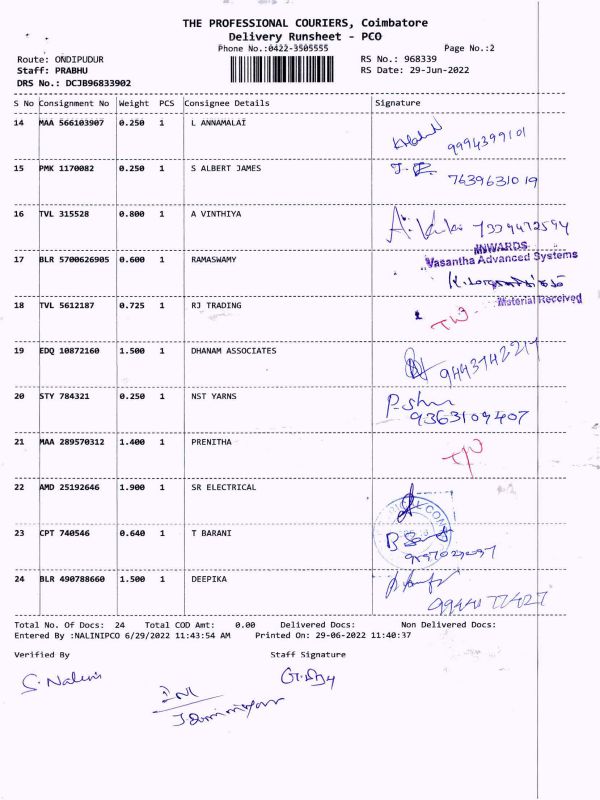 THE PROFESSIONAL COURIERS, Coimbatore
Delivery Runsheet - PCO
Phone No.:0422-3505555 Page No.:2
Route: ONDIPUDUR RS No.: 968339
Staff: PRABHU RS Date: 29-Jun-2022
DRS No.: DCJB96833902
S No Consignment No Weight PCS Consignee Details Signature
14 MAA 566103907 0.250 1 L ANNAMALAI
9994399101
15 PMK 1170082 0.250 1 S ALBERT JAMES
7639631019
16 TVL 315528 0.800 1 A VINTHIYA
7339472594
INWARDS
17 BLR 5700626905 0.600 1 RAMASWAMY Vasantha Advanced Systems
Material Received
18 TVL 5612187 0.725 1 RJ TRADING
19 EDQ 10872160 1.500 1 DHANAM ASSOCIATES
20 STY 784321 0.250 1 NST YARNS
9363109407
21 MAA 289570312 1.400 1 PRENITHA
22 AMD 25192646 1.900 1 SR ELECTRICAL
23 CPT 740546 0.640 1 T BARANI
24 BLR 490788660 1.500 1 DEEPIKA
Total No. Of Docs: 24 Total COD Amt: 0.00 Delivered Docs: Non Delivered Docs:
Entered By :NALINIPCO 6/29/2022 11:43:54 AM Printed On: 29-06-2022 11:40:37
Verified By Staff Signature
S. Nalini